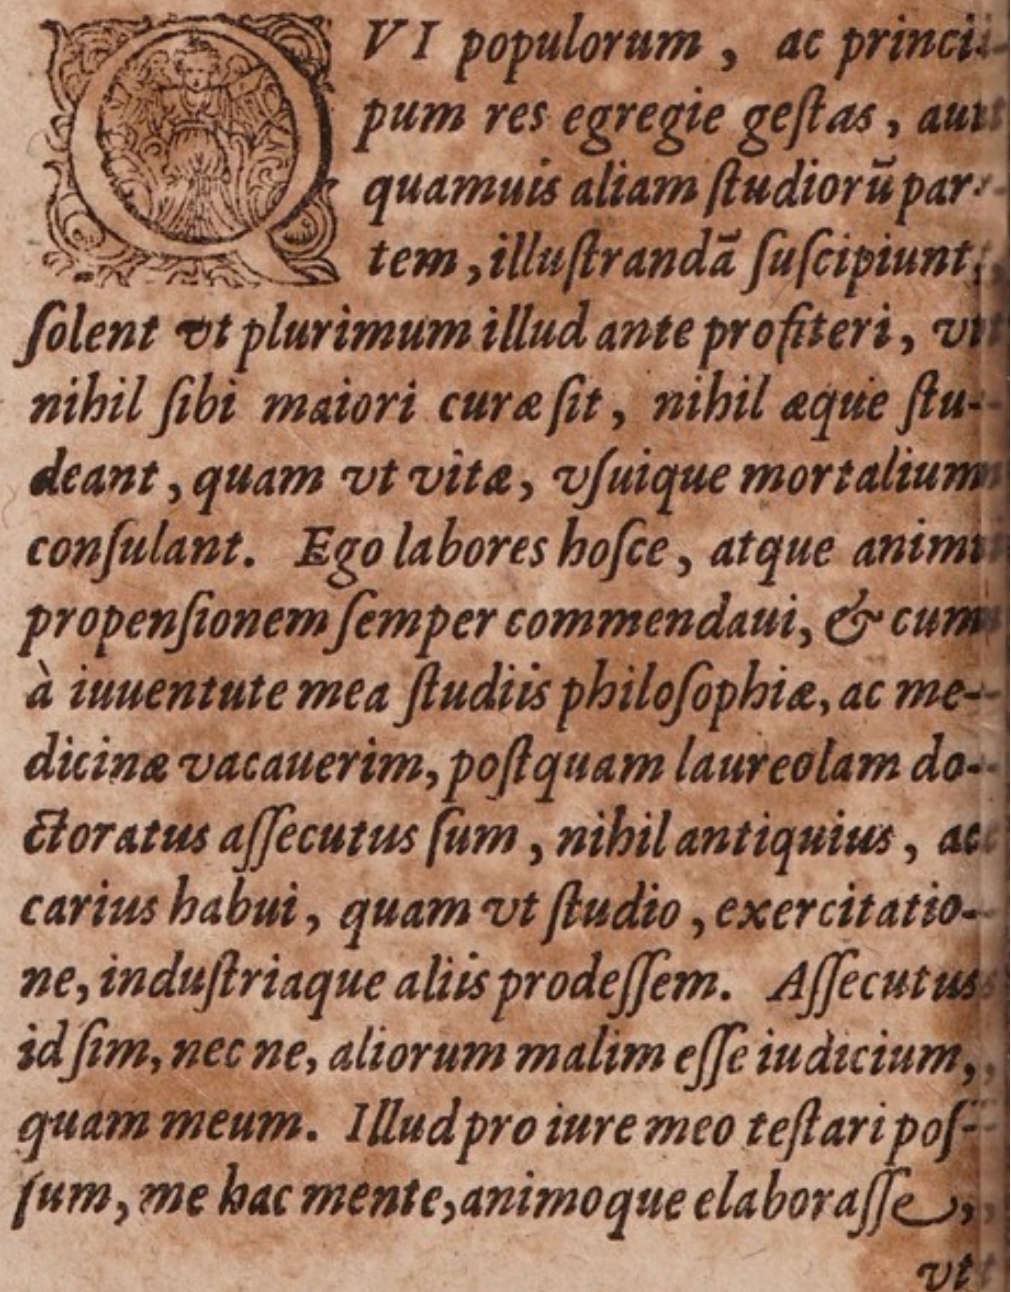 QVI populorum, ac princi-
pum res egregie geſtas, aut
quamuis aliam ſtudiorū par-
tem, illuſtrandā ſuſcipiunt,
ſolent vt plurimum illud ante profiteri, vt
nihil ſibi maiori curæ ſit, nihil æque ſtu-
deant, quam vt vitæ, vſuique mortalium
conſulant. Ego labores hoſce, atque animi
propenſionem ſemper commendaui, & cum
à iuuentute mea ſtudiis philoſophiæ, ac me-
dicinæ vacauerim, poſtquam laureolam do-
ctoratus aſſecutus ſum, nihil antiquius, ac
carius habui, quam vt ſtudio, exercitatio-
ne, induſtriaque aliis prodeſſem. Aſſecutus
id ſim, nec ne, aliorum malim eſſe iudicium,
quam meum. Illud pro iure meo teſtari poſ-
ſum, me hac mente, animoque elaboraſſe,
vt